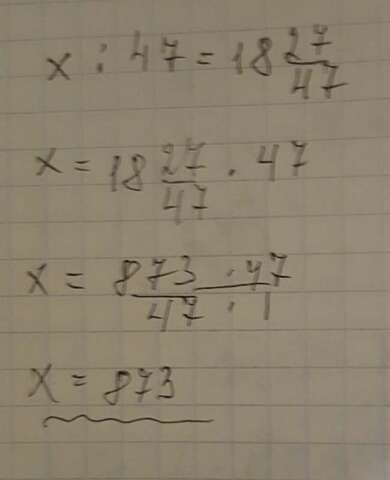 x : 47 = 18 27/47
x = 18 27/47 · 47
x = 873 · 47 / 47 · 1
x = 873